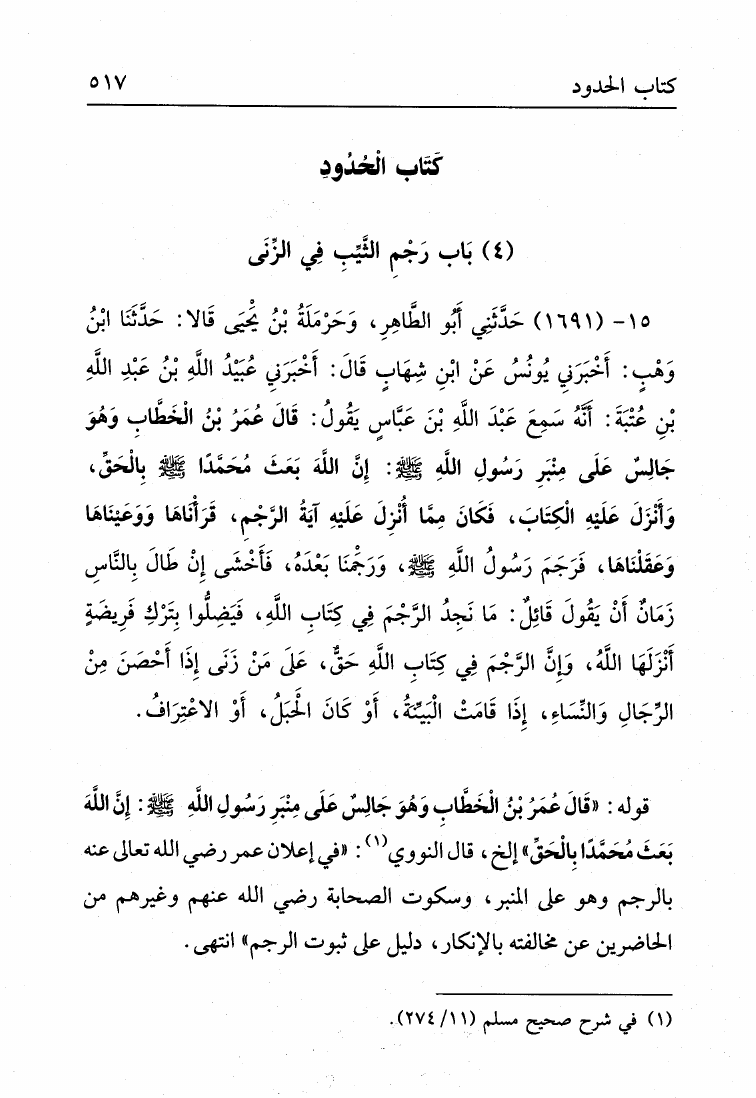 كتاب الحدود ٥١٧
كَتَاب الْحُدُودِ
(٤) بَاب رَجْمِ الثَّيِّبِ فِي الزِّنَى
١٥- (١٦٩١) حَدَّثَنِي أَبُو الطَّاهِرِ، وَحَرْمَلَةُ بْنُ يَحْيَى قَالا: حَدَّثَنَا ابْنُ
وَهْبٍ: أَخْبَرَنِي يُونُسُ عَنْ ابْنِ شِهَابٍ قَالَ: أَخْبَرَنِي عُبَيْدُ اللَّهِ بْنُ عَبْدِ اللَّهِ
بْنِ عُتْبَةَ: أَنَّهُ سَمِعَ عَبْدَ اللَّهِ بْنَ عَبَّاسٍ يَقُولُ: قَالَ عُمَرُ بْنُ الْخَطَّابِ وَهُوَ
جَالِسٌ عَلَى مِنْبَرِ رَسُولِ اللَّهِ ﷺ: إِنَّ اللَّهَ بَعَثَ مُحَمَّدًا ﷺ بِالْحَقِّ،
وَأَنْزَلَ عَلَيْهِ الْكِتَابَ، فَكَانَ مِمَّا أُنْزِلَ عَلَيْهِ آيَةُ الرَّجْمِ، قَرَأْنَاهَا وَوَعَيْنَاهَا
وَعَقَلْنَاهَا، فَرَجَمَ رَسُولُ اللَّهِ ﷺ، وَرَجَمْنَا بَعْدَهُ، فَأَخْشَى إِنْ طَالَ بِالنَّاسِ
زَمَانٌ أَنْ يَقُولَ قَائِلٌ: مَا نَجِدُ الرَّجْمَ فِي كِتَابِ اللَّهِ، فَيَضِلُّوا بِتَرْكِ فَرِيضَةٍ
أَنْزَلَهَا اللَّهُ، وَإِنَّ الرَّجْمَ فِي كِتَابِ اللَّهِ حَقٌّ، عَلَى مَنْ زَنَى إِذَا أَحْصَنَ مِنْ
الرِّجَالِ وَالنِّسَاءِ، إِذَا قَامَتْ الْبَيِّنَةُ، أَوْ كَانَ الْحَبَلُ، أَوْ الاعْتِرَافُ.
قوله: «قَالَ عُمَرُ بْنُ الْخَطَّابِ وَهُوَ جَالِسٌ عَلَى مِنْبَرِ رَسُولِ اللَّهِ ﷺ: إِنَّ اللَّهَ
بَعَثَ مُحَمَّدًا بِالْحَقِّ» إلخ، قال النووي(١): «في إعلان عمر رضي الله تعالى عنه
بالرجم وهو على المنبر، وسكوت الصحابة رضي الله عنهم وغيرهم من
الحاضرين عن مخالفته بالإنكار، دليل على ثبوت الرجم» انتهى.
(١) في شرح صحيح مسلم (١١/ ٢٧٤).